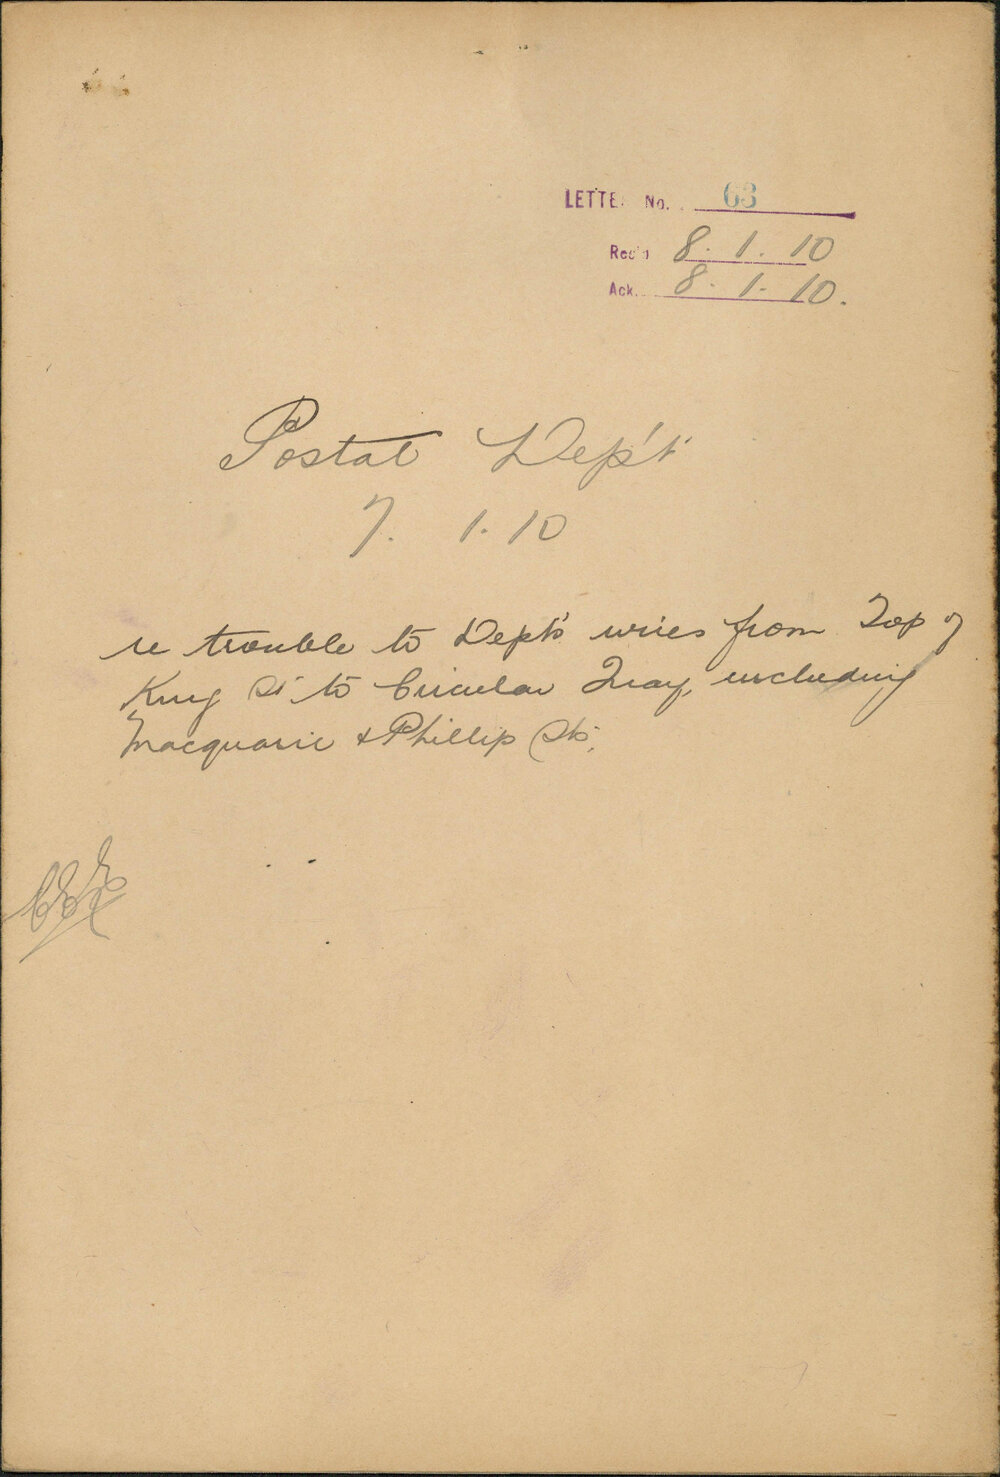 LETTER No. 63
Rec'd 8. 1. 10
Ack. 8. 1. 10.
Postal Dep't
7. 1. 10
re trouble to Dept's wires from Top of
King St to Circular Quay, including
Macquarie & Phillip Sts.